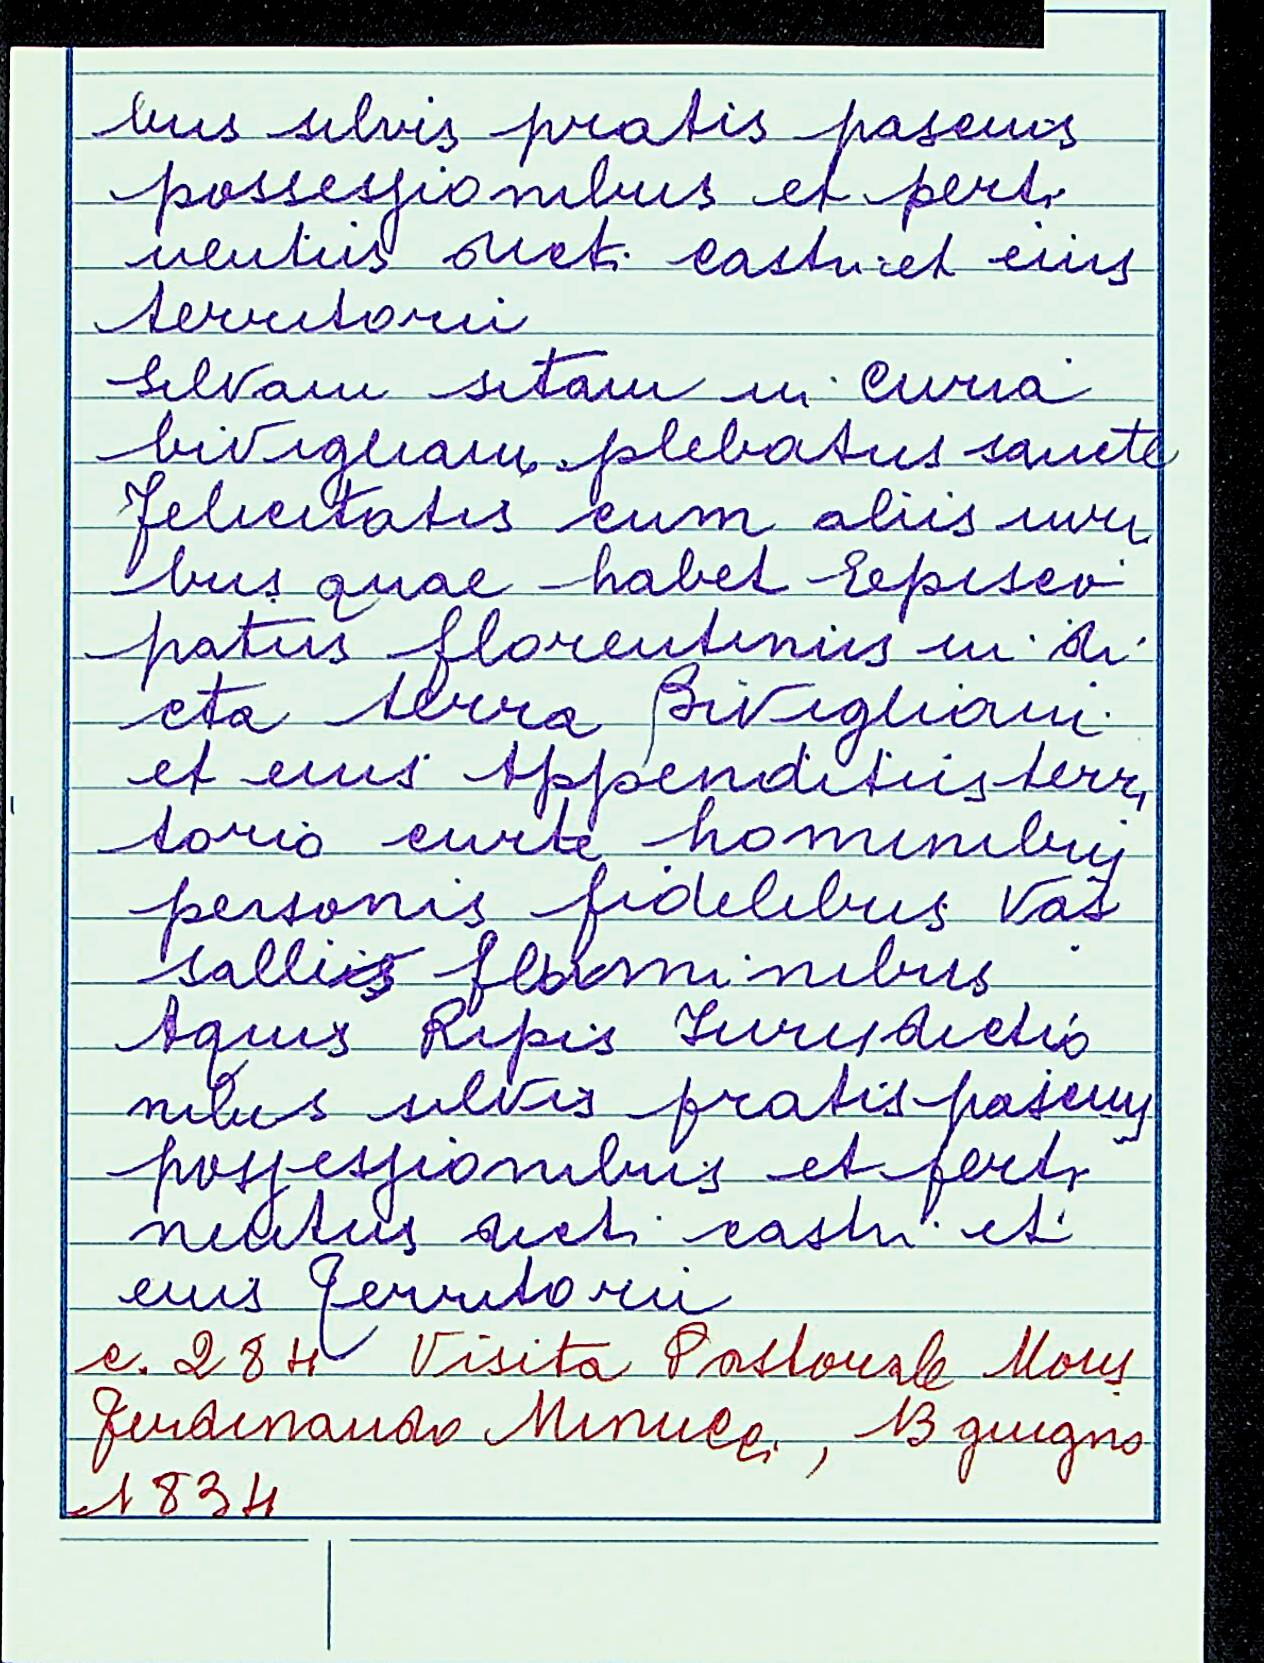 bus silvis pratis pascuis
possessionibus et perti
nentiis dicti castri et eius
territorii
Silvam sitam in Curia
bivigliani plebatus sancte
Felicitatis cum aliis iuri
bus quae habet Episco
patus florentinus in di
cta terra Bivigliani
et eius Appenditiis terri
torio curte hominibus
personis fidelibus Vas
sallis fluminibus
Aquis Ripis Jurisdictio
nibus silvis pratis pascuis
possessionibus et perti
nentiis dicti castri et
eius Territorii
c. 284 Visita Pastorale Mons
Ferdinando Minucci, 13 giugno
1834